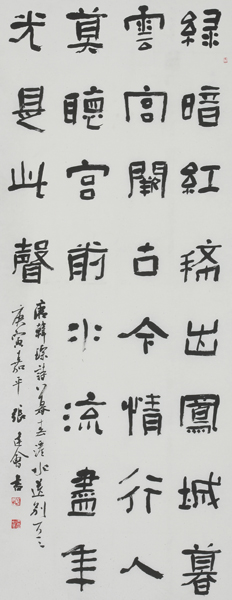 綠暗紅稀出鳳城暮
雲宮闕古今情行人
莫聽宮前水流盡年
光是此聲
唐韓琮詩暮春滻水送別
庚寅嘉平張建會書